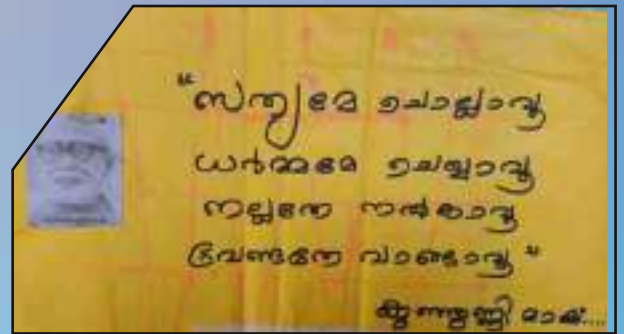 "സത്യമേ ചൊല്ലാവൂ
ധർമ്മമേ ചെയ്യാവൂ
നല്ലതേ നൽകാവൂ
വേണ്ടതേ വാങ്ങാവൂ"
കുഞ്ഞുണ്ണി മാഷ്....